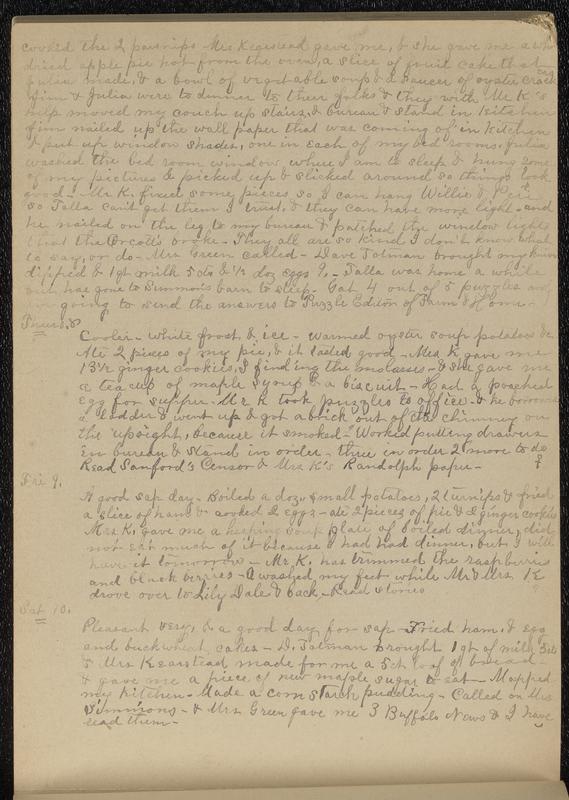 cooked the 2 parsnips Mrs Kegestead gave me, & she gave me a
dried apple pie hot from the oven, a slice of fruit cake that
Julia made, & a bowl of vegetable soup & a saucer of oyster
Jim & Julia were to dinner to their folks & they with Mr K's
help moved my couch up stairs, & bureau & stand in kitchen
Jim nailed up the wall paper that was coming off in kitchen
& put up window shades, one in each of my bed rooms. Julia
washed the bed room window, where I am to sleep & hung some
of my pictures & picked up & slicked around so things look
good. Mr. K. fixed some pieces so I can hang Willie &
so Talla can't get them I trust, & they can have more light. and
he nailed on the leg to my bureau & patched the window lights
that the Orcotts broke. They all are so kind I don't know what
to say, or do. Mrs Green called. Dave Tolman brought my
dipped & 1 qt milk 5cts & ½ doz eggs 9. Talla was home a while
has gone to Simmons barn to sleep. Got 4 out of 5 puzzles
going to send the answers to Puzzle Editor of Farm & Home.
Thurs. 8
Cooler. White frost, & ice. Warmed oyster soup potatoes &c
Ate 2 pieces of my pie, & it tasted good. Mrs K gave me
13½ ginger cookies, I finding the molasses. & she gave me
a tea cup of maple syrup & a biscuit. Had a poached
egg for supper. Mr K took puzzles to office. & he borrowed
a ladder & went up & got a brick out of the chimney on
the upright, because it smoked. Worked putting drawers
in bureau & stand in order. three in order 2 more to do
Read Sanford's Censor & Mrs K's Randolph paper.
Fri 9.
A good sap day. Boiled a doz. small potatoes, 2 turnips & fried
a slice of ham & cooked 2 eggs. ate 2 pieces of pie & 2 ginger cookies
Mrs K. gave me a heaping soup plate of boiled dinner, did
not eat much of it because I had had dinner, but I will
have it tomorrow. Mr K. has trimmed the raspberries
and black berries. I washed my feet while Mr & Mrs K
drove over to Lily Dale & back. Read stories
Sat 10.
Pleasant very, & a good day for sap. Fried ham, & egg
and buckwheat cakes. D. Tolman brought 1 qt of milk 5cts
& Mrs Kearstead made for me a 5ct loaf of bread.
& gave me a piece of new maple sugar to eat. Mopped
my kitchen. Made a corn starch pudding. Called on Mrs
Simmons. & Mrs Green gave me 3 Buffalo News & I have
read them.